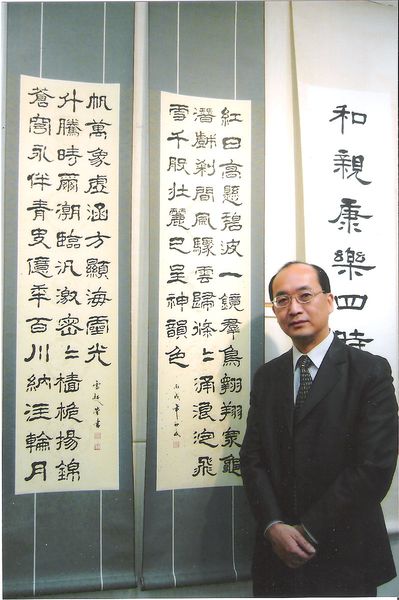 和親康樂四時
紅日高懸碧波一鏡羣鳥翱翔象龜
潛戲剎間風驟雲歸滌〻涌浪泡飛
雪千股壯麗已呈神韻色
蒼穹永伴青史億年百川納注輪月
升騰時爾潮臨汎激密〻檣桅揚錦
帆萬象虛涵方顯海靈光